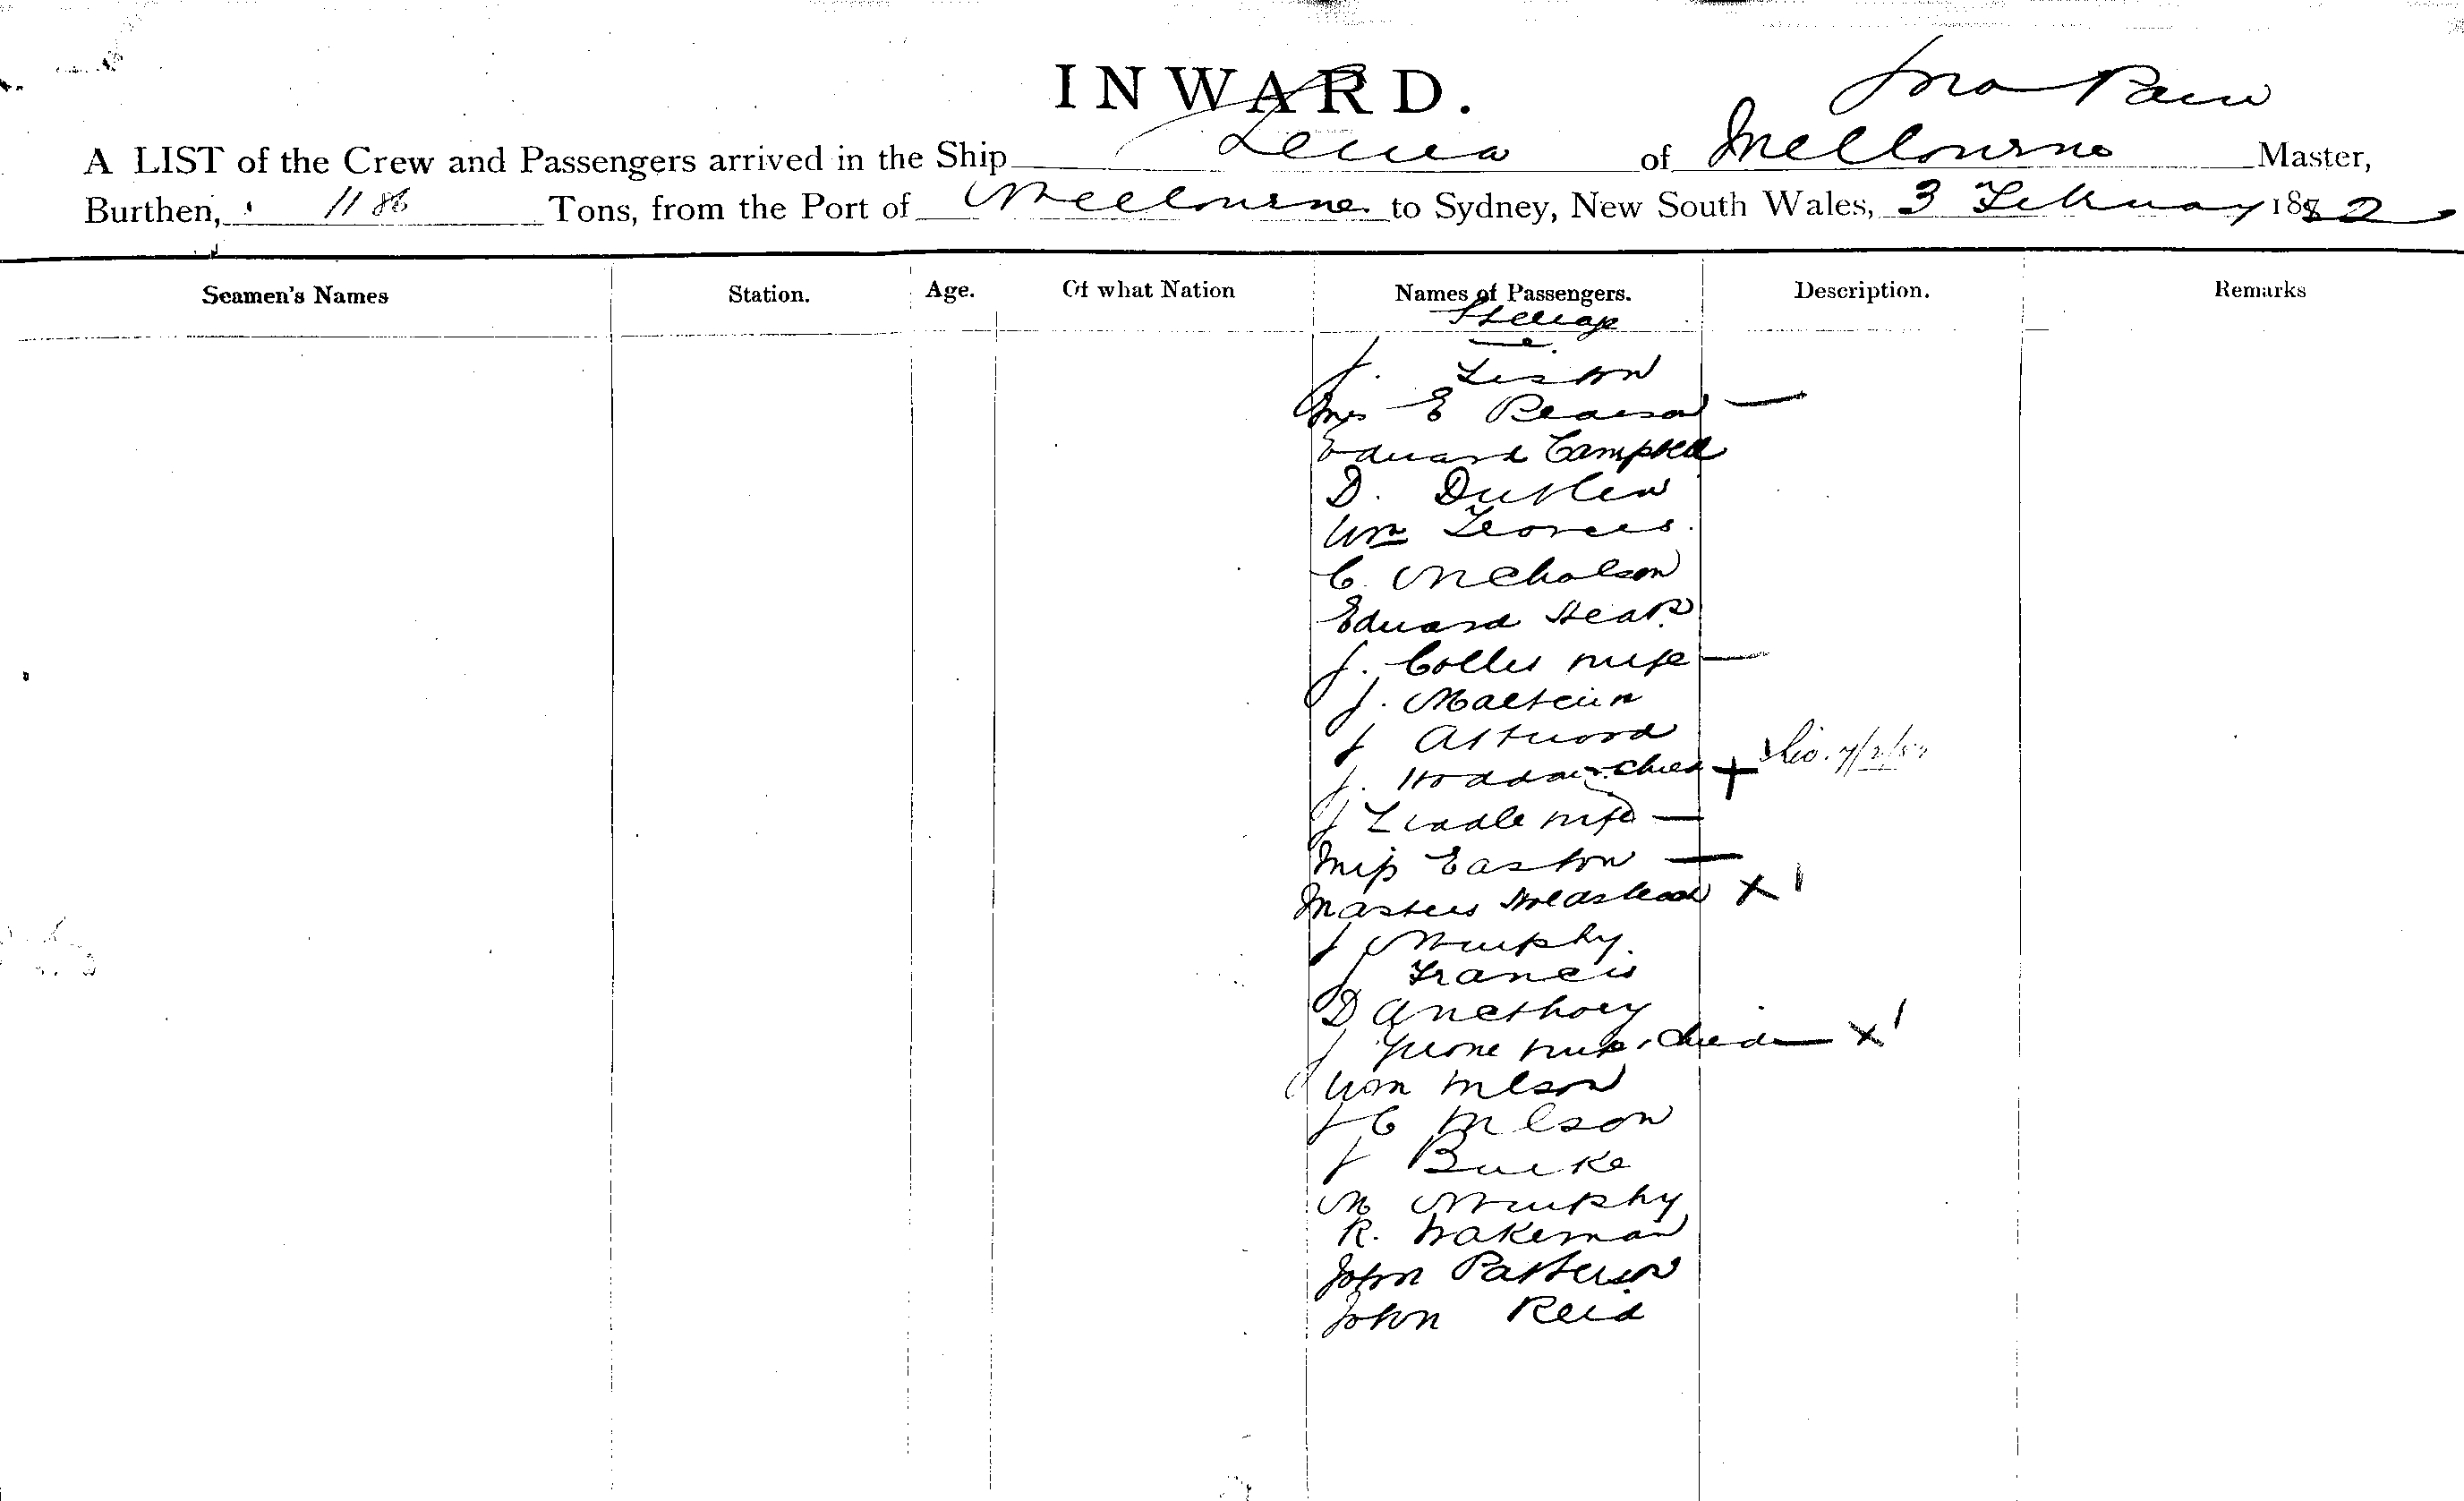 INWARD.
A LIST of the Crew and Passengers arrived in the Ship of Melbourne Master,
Burthen, 1186 Tons, from the Port of Melbourne to Sydney, New South Wales, 3 February 1882
Seamen's Names Station. Age. Of what Nation Names of Passengers. Description. Remarks
Steerage
J. Liston
Mrs E Pearson —
Edward Campbell
D.
Wm
C. Nicholson
Edward Heap
J. Collis wife —
J.
J Attwood
J. child +
J Liddle wife —
Miss Easton —
Masters X 1
J Murphy
J Francis
D
J wife, child — X 1
Wm Wilson
J C Wilson
J Burke
M Murphy
R. Wakeman
John Patterson
John Reid